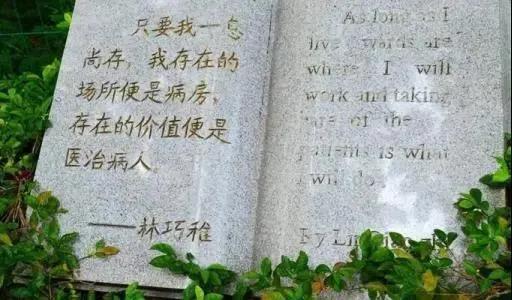 只要我一息
尚存，我存在的
场所便是病房，
存在的价值便是
医治病人。
——林巧稚
As long as I
live, wards are
where I will
work and taking
care of the
patients is what
I will do.
By